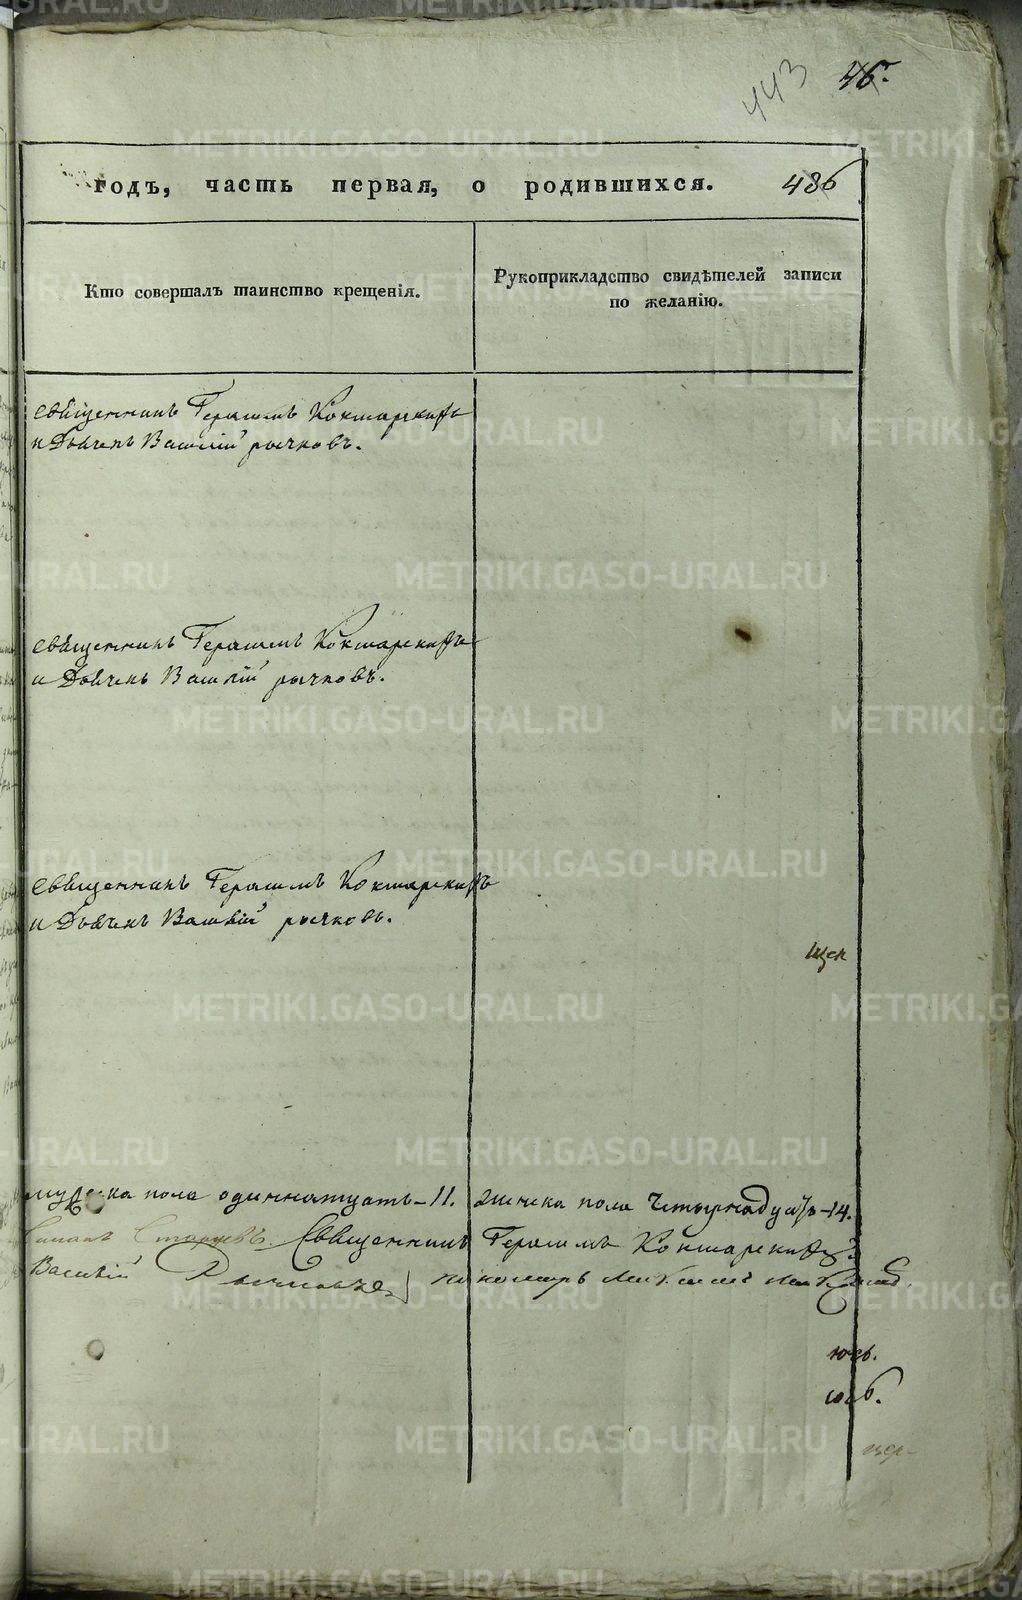 443 46.
годъ, часть первая, о родившихся. 486
Кто совершалъ таинство крещенія.
Рукоприкладство свидѣтелей записи
по желанію.
священникъ Герасимъ Кокшарскихъ
и Дьячекъ Василій рычковъ.
священникъ Герасимъ Кокшарскихъ
и Дьячекъ Василій рычковъ.
священникъ Герасимъ Кокшарскихъ
и Дьячекъ Василій рычковъ.
мужеска пола одиннатцать – 11. женска пола четырнадцать – 14.
Священникъ Герасимъ Кокшарскихъ
Василій Рычковъ пономарь
METRIKI.GASO-URAL.RU